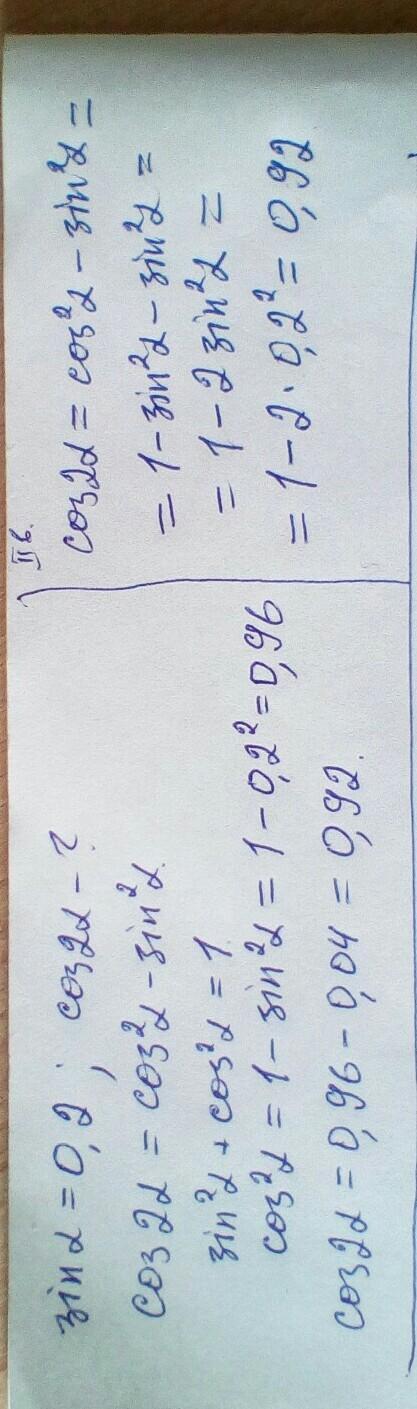 sin α = 0,2 ; cos 2α - ?
cos 2α = cos²α - sin²α.
sin²α + cos²α = 1
cos²α = 1 - sin²α = 1 - 0,2² = 0,96
cos 2α = 0,96 - 0,04 = 0,92.
II в.
cos 2α = cos²α - sin²α =
= 1 - sin²α - sin²α =
= 1 - 2 sin²α =
= 1 - 2 · 0,2² = 0,92